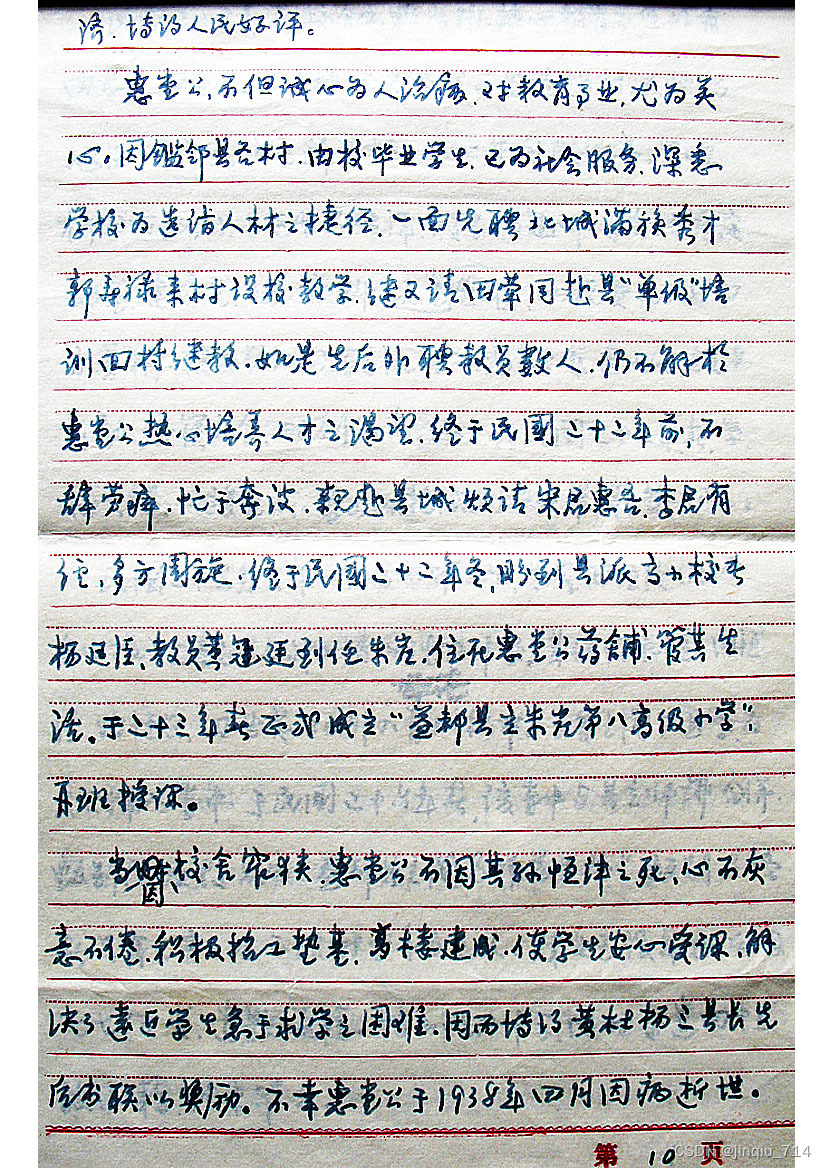 济.博得人民好评。
惠堂公,不但诚心为人治病.对教育事业,尤为关
心。因鑑邻县各村.由校毕业学生.已为社会服务.深悉
学校为造诣人材之捷径.一面先聘北城满族秀才
郭寿禄来村设校教学.继又请田荦同赴县"单级"培
训回村继教.如是先后外聘教员數人.仍不解於
惠堂公热心培养人才之渴望.终于民國二十二年前,不
辞劳瘁.忙于奔波.親赴县城烦请宋昆惠吾.李昆有
经,多方周旋.终于民國二十二年冬,盼到县派高小校长
杨廷臣、教员黄冠廷到任朱崖.住死惠堂公药舖.管其生
活。于二十三年春正式成立"益都县立朱崖第八高级小学",
再班授课。
当时因校舍窄狭.惠堂公不因其孙恒津之死,心不灰
意不倦.积极拾工垫基.葛楼建成.使学生安心受课,解
决了遠近学生急于求学之困难.因而博得黄杜杨三县长先
后书联以奖励。不幸惠堂公于1938年四月因病逝世。
第 10 页
CSDN @jinqiu_714